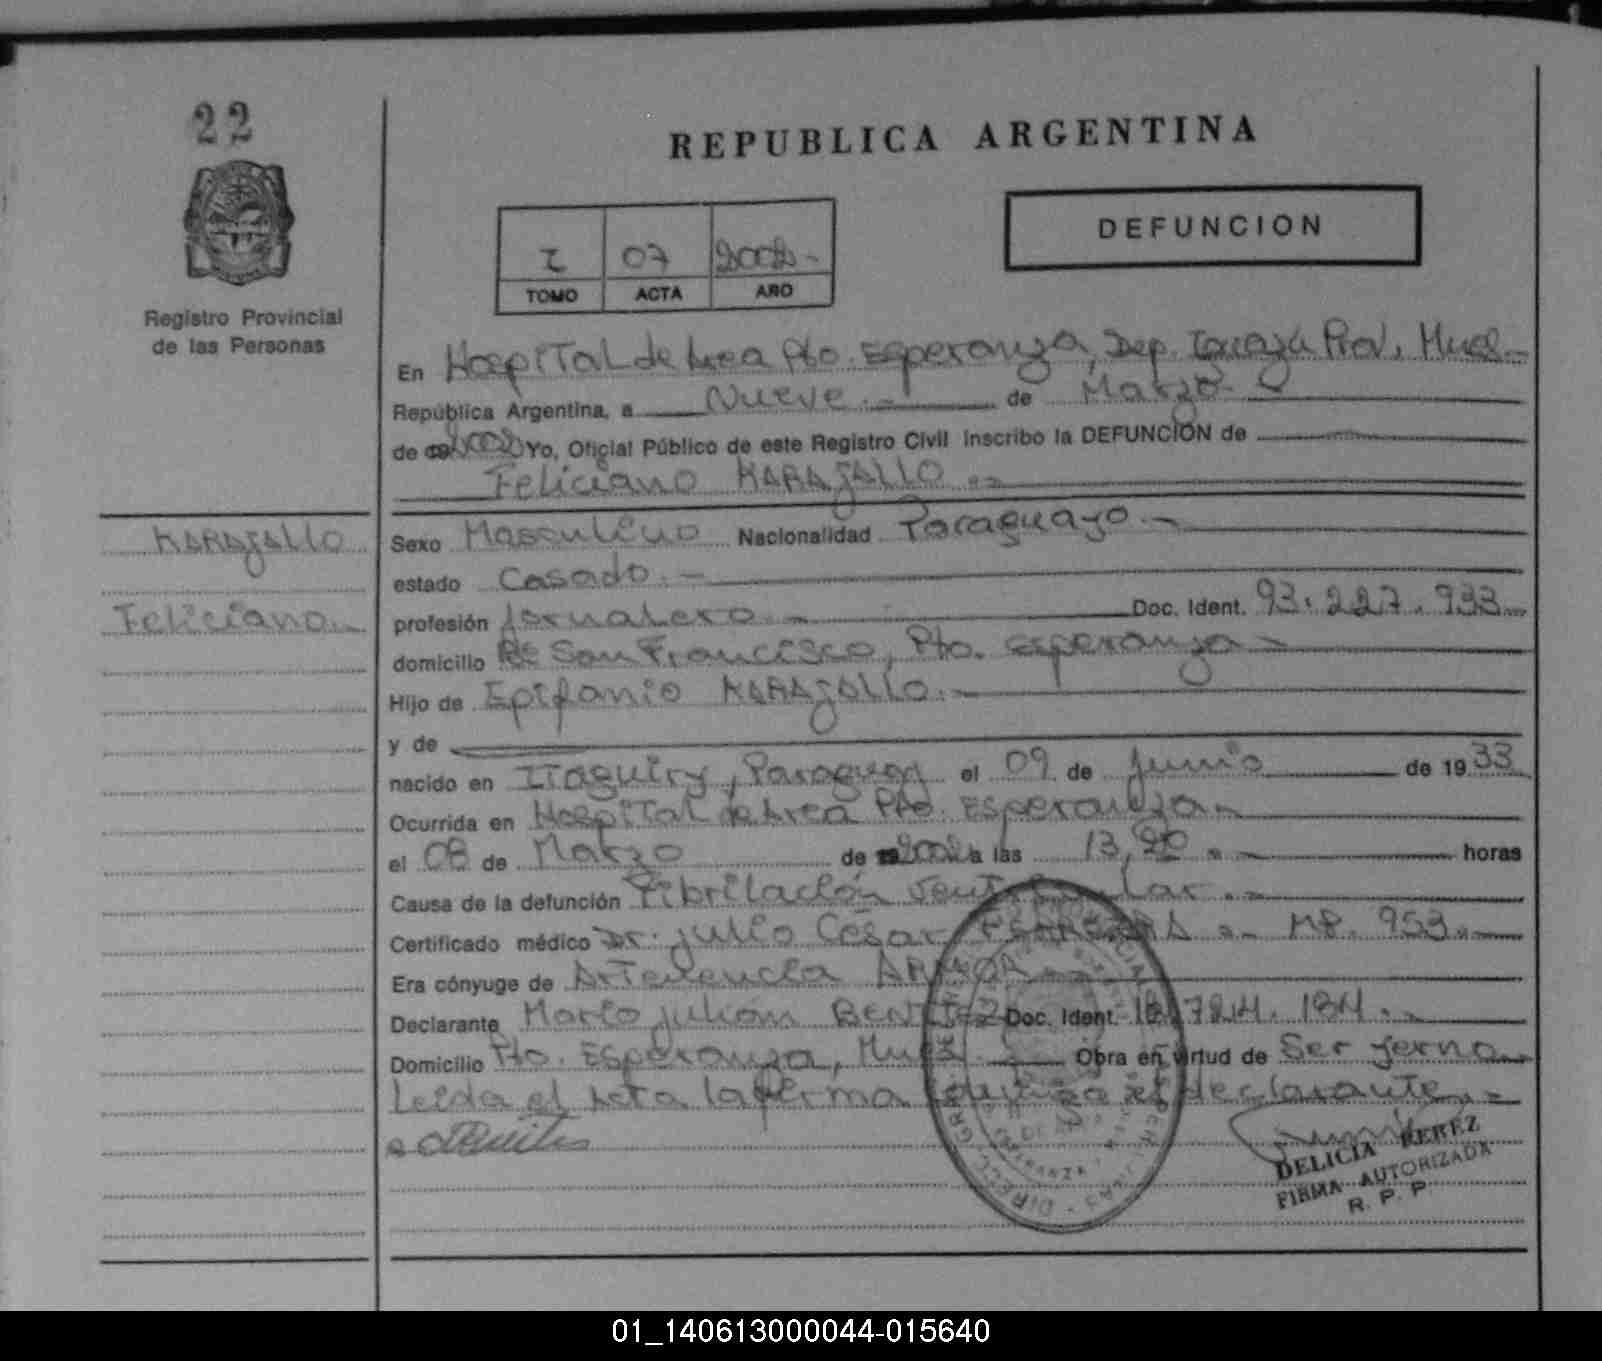 22
REPUBLICA ARGENTINA
DEFUNCION
I 07 2002.-
TOMO ACTA AÑO
Registro Provincial
de las Personas
En Hospital de Area Pto. Esperanza, Dep. Prov. Mnes.-
República Argentina, a Nueve.- de Marzo
de 2002 Yo, Oficial Público de este Registro Civil inscribo la DEFUNCION de
Feliciano MARAJALLO.=
MARAJALLO
Feliciano.-
Sexo Masculino Nacionalidad Paraguayo.-
estado Casado.-
profesión Jornalero.- Doc. Ident. 93.227.933
domicilio Bº San Francisco, Pto. Esperanza-
Hijo de Epifanio MARAJALLO.-
y de
nacido en Itaquiry, Paraguay el 09 de Junio de 1933
Ocurrida en Hospital de Area Pto. Esperanza-
el 08 de Marzo de 2002 a las 13,20.- horas
Causa de la defunción Fibrilación Ventricular.-
Certificado médico Dr. Julio César MP. 953.-
Era cónyuge de
Declarante Mario Julián BENITEZ Doc. Ident. 18.724.184.-
Domicilio Pto. Esperanza, Mnes. Obra en virtud de Ser yerno
Leida el Acta la firma conmigo el declarante.=
DELICIA PEREZ
FIRMA AUTORIZADA
R. P. P.
01_140613000044-015640